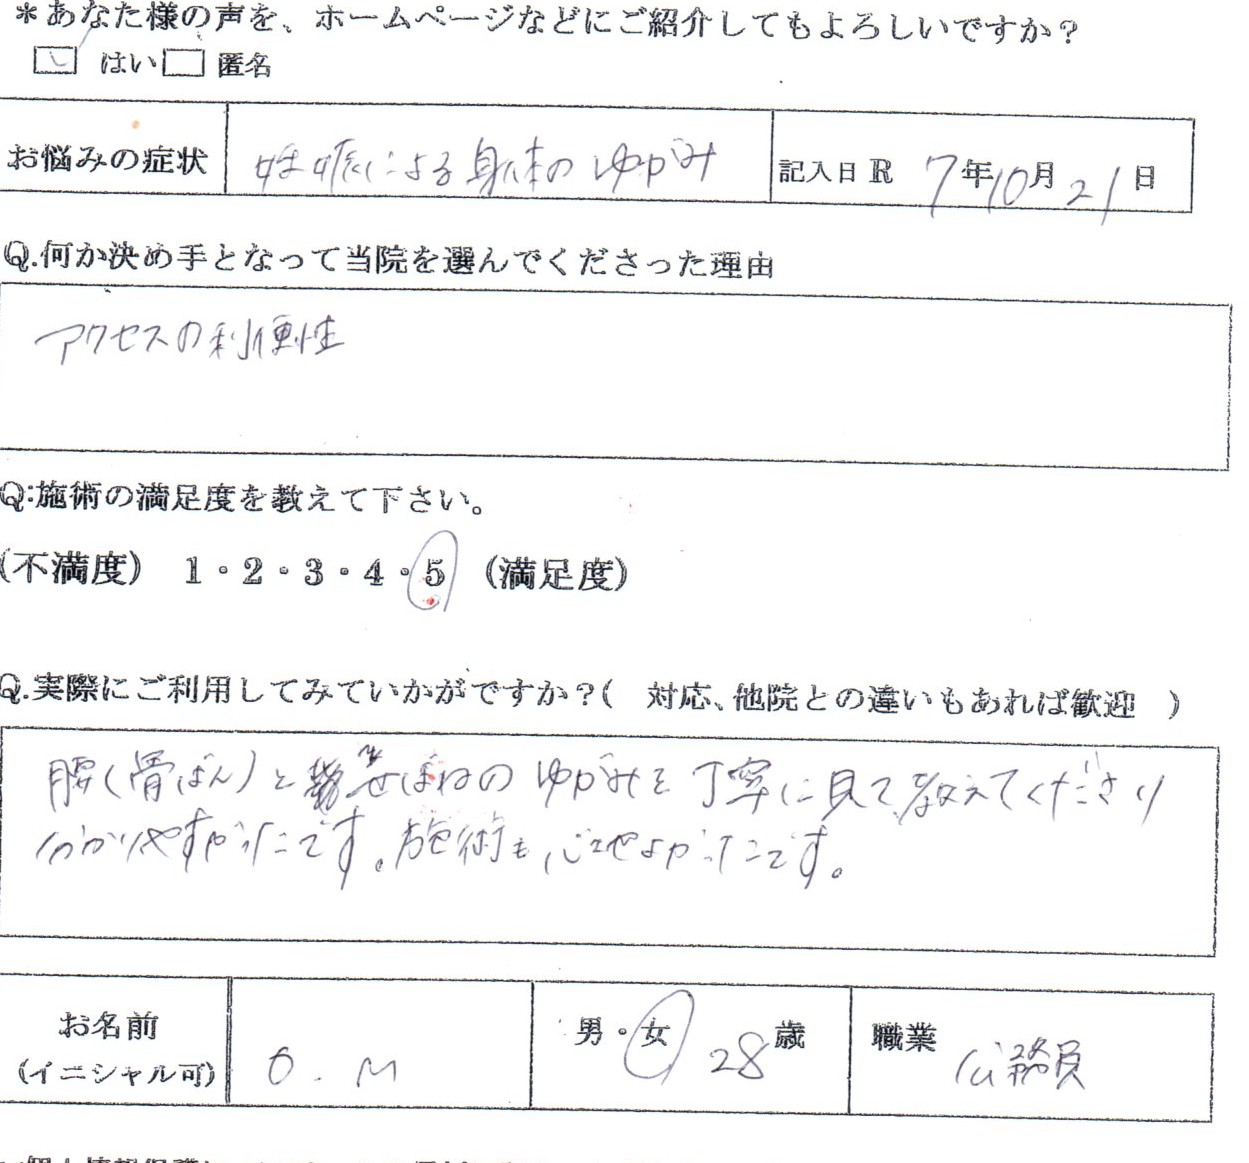 ＊あなた様の声を、ホームページなどにご紹介してもよろしいですか？
はい 匿名
お悩みの症状 妊娠による身体のゆがみ 記入日 R 7年10月21日
Q.何か決め手となって当院を選んでくださった理由
アクセスの利便性
Q:施術の満足度を教えて下さい。
（不満度） 1・2・3・4・5 （満足度）
Q.実際にご利用してみていかがですか？( 対応、他院との違いもあれば歓迎 )
腰(骨ばん)と せぼねの ゆがみを 丁寧に見て教えてくださり
分かりやすかったです。施術も心地よかったです。
お名前
(イニシャル可) O.M 男・女 28歳 職業 公務員